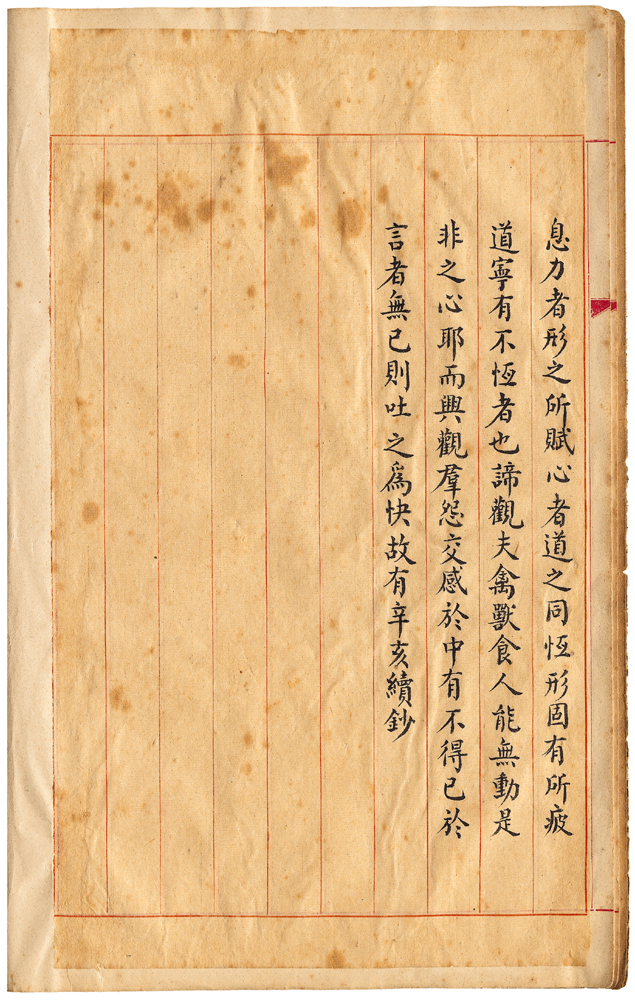 息力者形之所賦心者道之同恆形固有所疲
道寧有不恆者也諦觀夫禽獸食人能無動是
非之心耶而興觀羣怨交感於中有不得已於
言者無已則吐之爲快故有辛亥續鈔